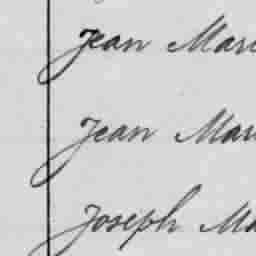 Jean Mari
Jean Mar
Joseph Ma